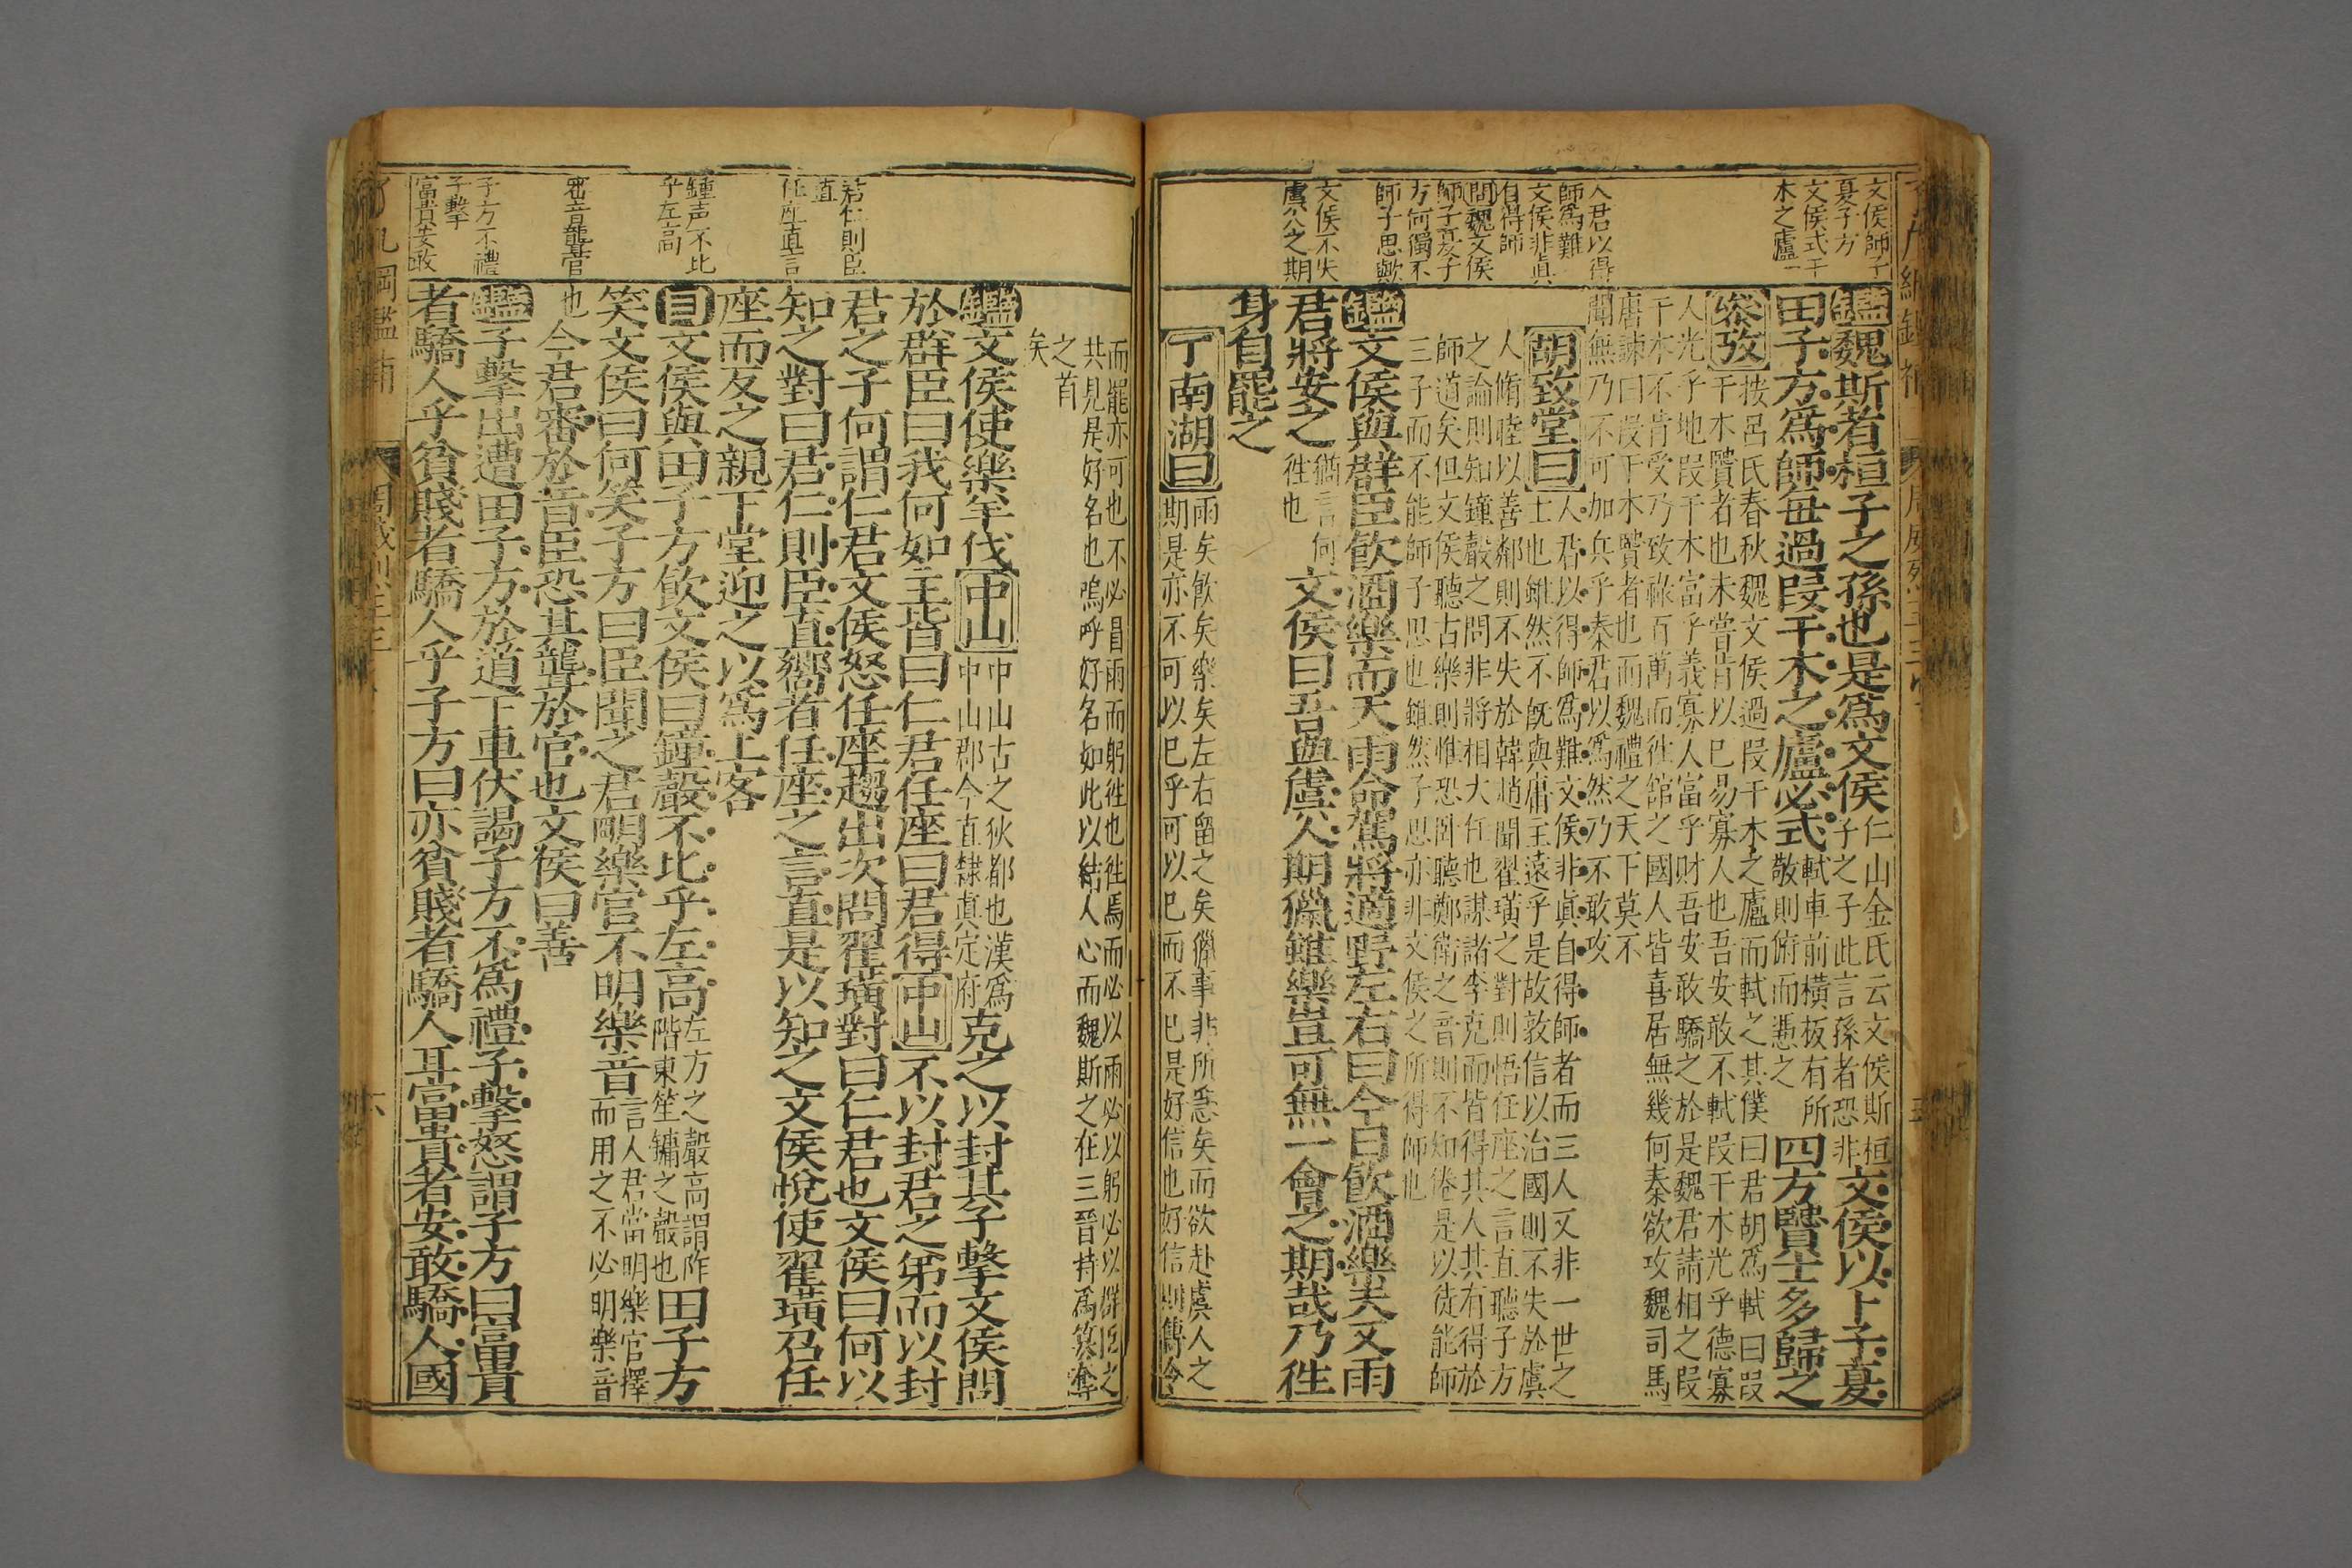 文侯師子
夏子方
文侯式干
木之廬
人君以得
師爲難
文侯非眞
自得師
問魏文侯
師子夏子
方何獨不
師子思歟
文侯不失
虞公之期
鑑魏斯者桓子之孫也是爲文侯仁山金氏云文侯斯桓
子之子此言孫者恐非文侯以卜子夏
田子方爲師每過段干木之廬必式軾車前橫板有所
敬則俯而憑之四方賢士多歸之
叅攷按呂氏春秋魏文侯過段干木之廬而軾之其僕曰君胡爲軾曰段
干木賢者也未嘗肯以已易寡人也吾安敢不軾段干木光乎德寡
人光乎地段干木富乎義寡人富乎財吾安敢驕之於是魏君請相之段
干木不肯受乃致祿百萬而徃舘之國人皆喜居無幾何秦欲攻魏司馬
唐諫曰段干木賢者也而魏禮之天下莫不
聞無乃不可加兵乎秦君以爲然乃不敢攻
胡致堂曰人君以得師爲難文侯非眞自得師者而三人又非一世之
士也雖然不旣與庸主遠乎是故敦信以治國則不失於虞
人脩睦以善鄰則不失於韓趙聞翟璜之對則悟任座之言直聽子方
之論則知鐘聲之問非將相大任也謀諸李克而皆得其人其有得於
師道矣但文侯聽古樂則惟恐卧聽鄭衛之音則不知倦是以徒能師
三子而不能師子思也雖然子思亦非文侯之所得師也
鑑文侯與群臣飮酒樂而天雨命駕將適野左右曰今日飮酒樂天又雨
君將安之猶言何
徃也文侯曰吾與虞人期獵雖樂豈可無一會之期哉乃徃
身自罷之
丁南湖曰雨矣飮矣樂矣左右留之矣儠事非所急矣而欲赴虞人之
期是亦不可以已乎可以已而不已是好信也好信則傳令
而罷亦可也不必冒雨而躬徃也徃焉而必以雨必以躬必以群臣之
共見是好名也嗚呼好名如此以結人心而魏斯之在三晉持爲簒奪
之首
矣
君仁則臣
直
任座直言
鍾声不比
乎左高
審音聾官
子方不禮
子擊
富貴安敢
鑑文侯使樂羊伐中山中山古之狄都也漢爲
中山郡今直隸真定府克之以封其子擊文侯問
於群臣曰我何如主皆曰仁君任座曰君得中山不以封君之弟而以封
君之子何謂仁君文侯怒任座趨出次問翟璜對曰仁君也文侯曰何以
知之對曰君仁則臣直嚮者任座之言直是以知之文侯悅使翟璜召任
座而反之親下堂迎之以爲上客
目文侯與田子方飮文侯曰鐘聲不比乎左高左方之聲高謂阼
階東笙鏞之聲也田子方
笑文侯曰何笑子方曰臣聞之君明樂官不明樂音言人君當明樂官擇
而用之不必明樂音
也今君審於音臣恐其聾於官也文侯曰善
鑑子擊出遭田子方於道下車伏謁子方不爲禮子擊怒謂子方曰富貴
者驕人乎貧賤者驕人乎子方曰亦貧賤者驕人耳富貴者安敢驕人國
六